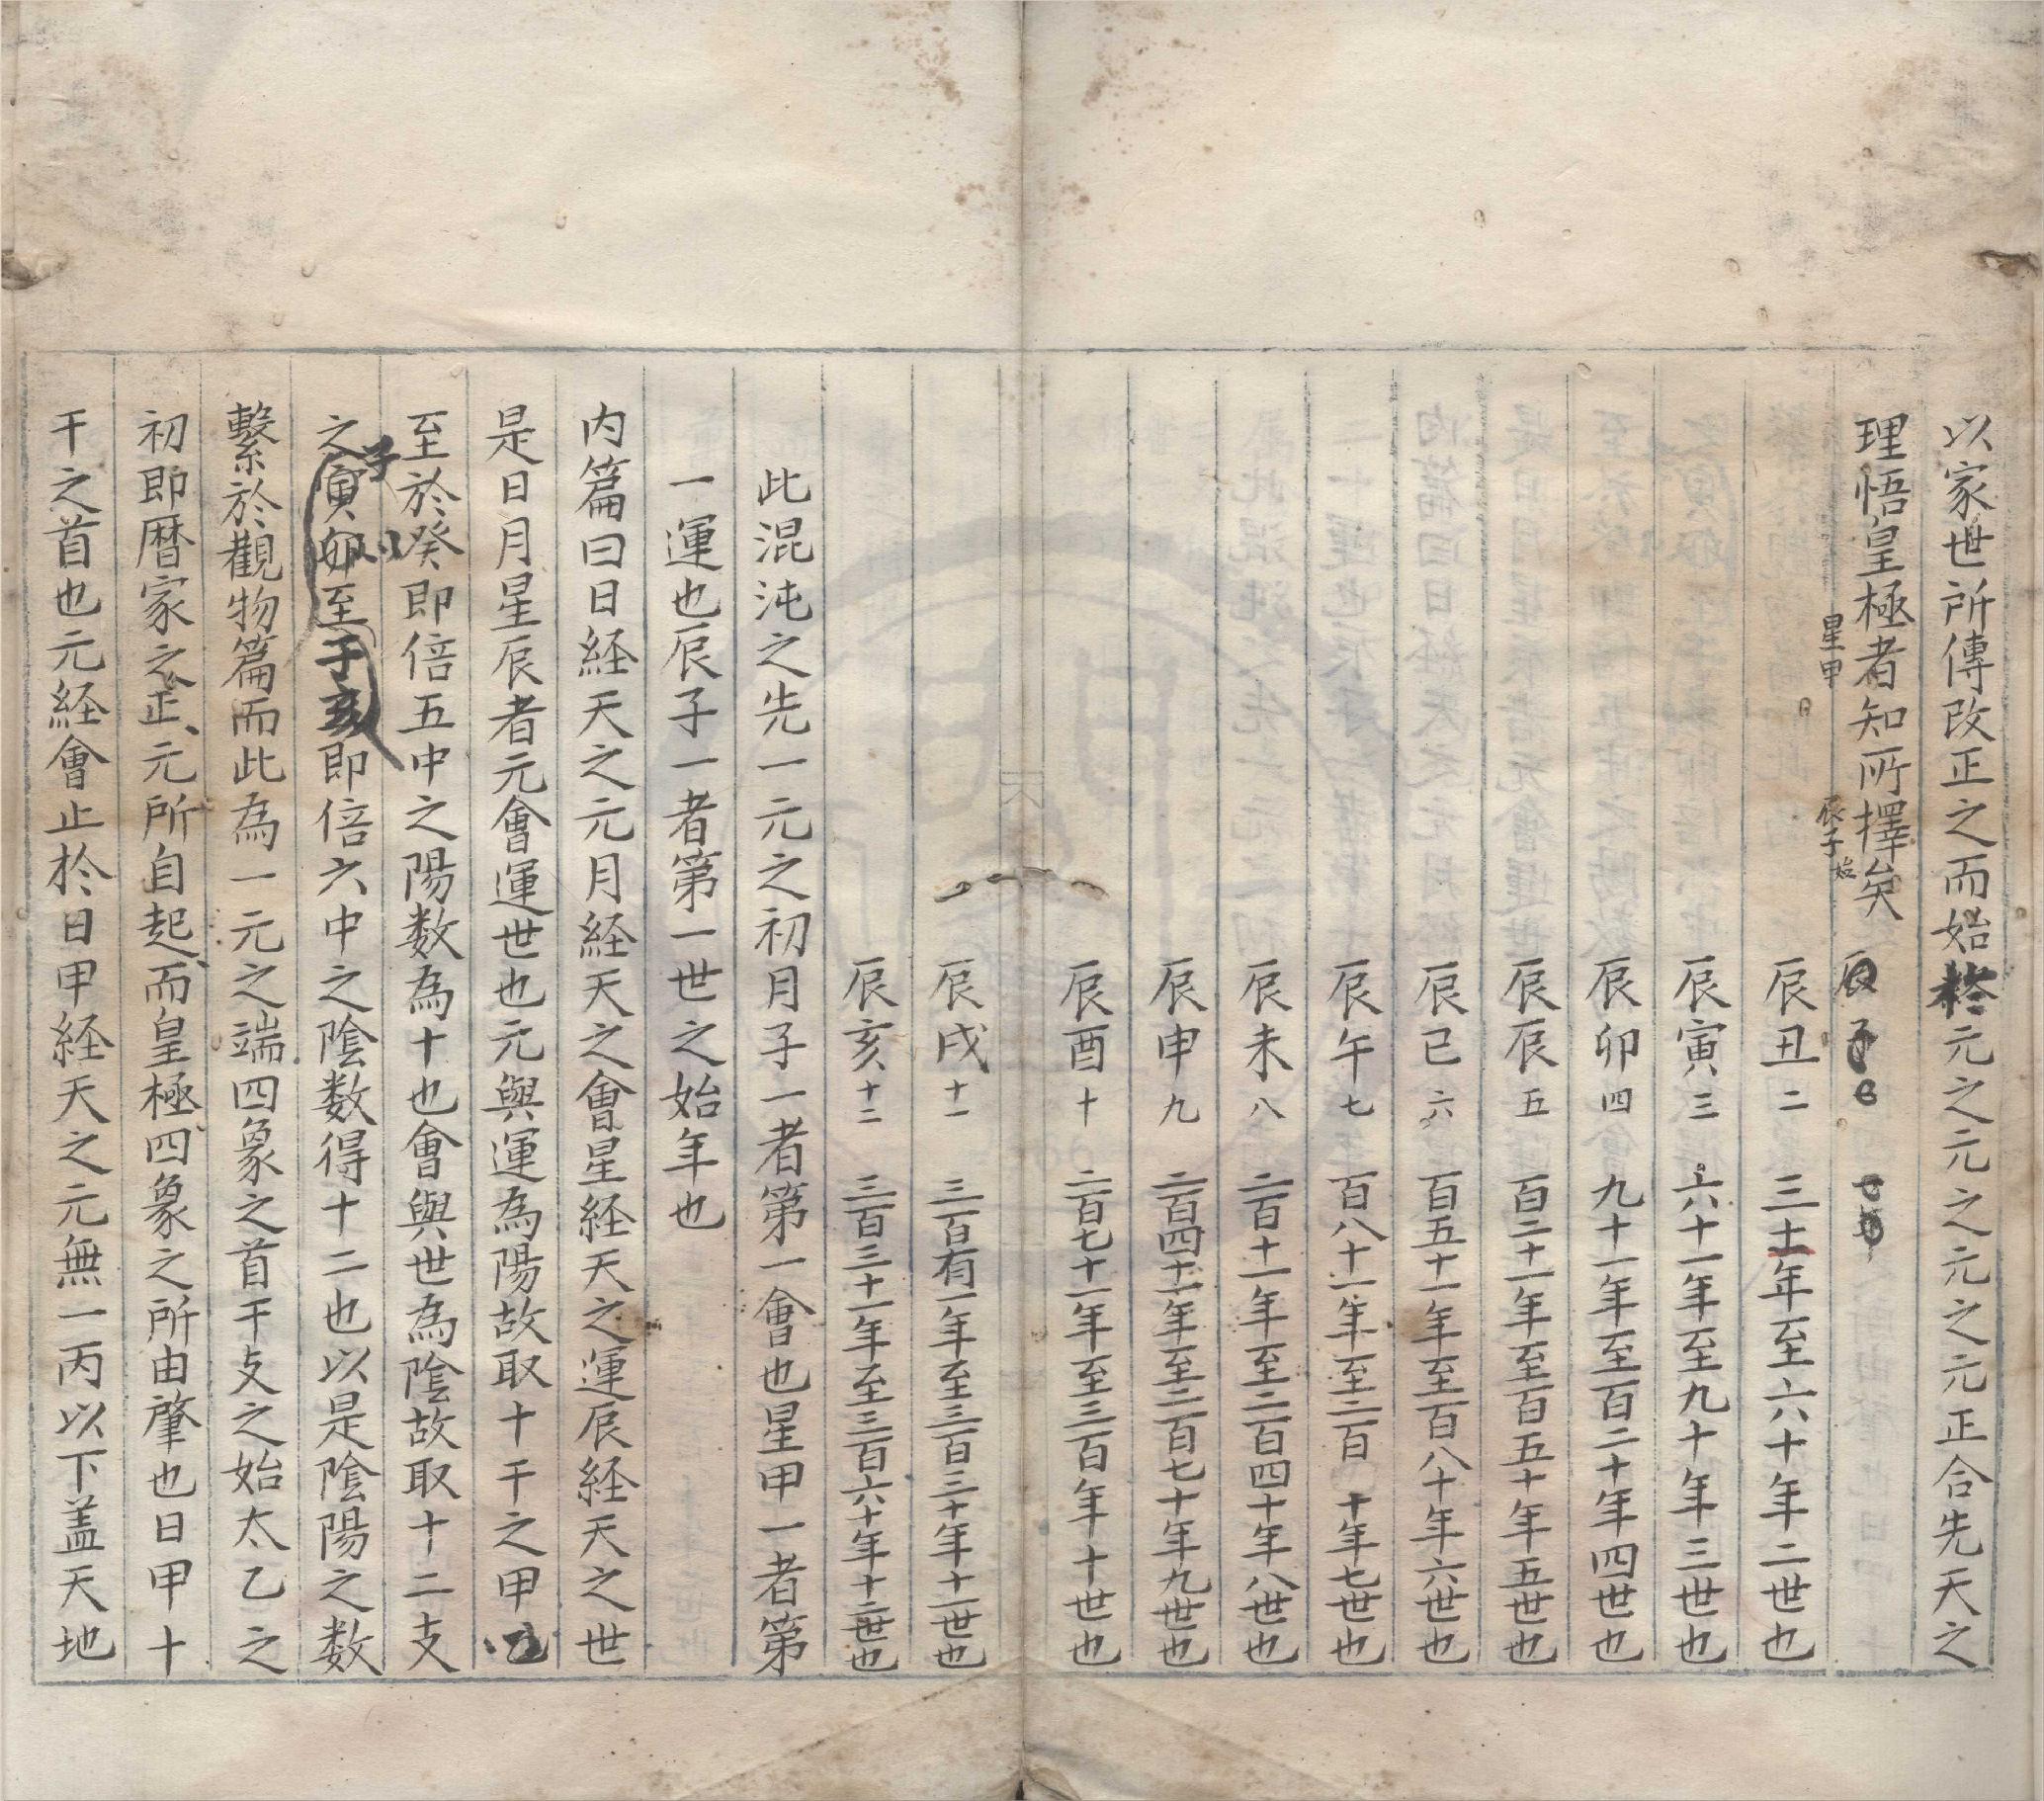 以家世所傳改正之而始於元之元之元之元正合先天之
理悟皇極者知所擇矣
星甲
辰子始
辰丑二 三十一年至六十年二世也
辰寅三 六十一年至九十年三世也
辰卯四 九十一年至百二十年四世也
辰辰五 百二十一年至百五十年五世也
辰巳六 百五十一年至百八十年六世也
辰午七 百八十一年至二百 十年七世也
辰未八 二百十一年至二百四十年八世也
辰申九 二百四十一年至二百七十年九世也
辰酉十 二百七十一年至三百年十世也
辰戌十一 三百有一年至三百三十年十一世也
辰亥十二 三百三十一年至三百六十年十二世也
此混沌之先一元之初月子一者第一會也星甲一者第
一運也辰子一者第一世之始年也
内篇曰日経天之元月経天之會星経天之運辰経天之世
是日月星辰者元會運世也元與運為陽故取十干之甲
至於癸即倍五中之陽数為十也會與世為陰故取十二支
之子寅卯至子亥即倍六中之陰数得十二也以是陰陽之数
繫於觀物篇而此為一元之端四象之首干支之始太乙之
初即暦家之正元所自起而皇極四象之所由肇也日甲十
干之首也元経會止於日甲経天之元無一丙以下盖天地